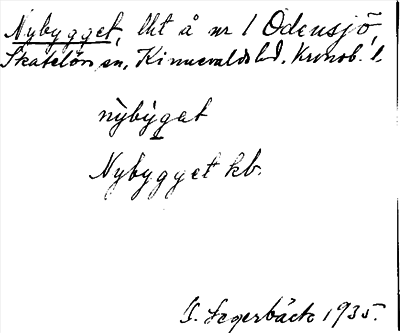 Nybygget, lht å nr 1 Odensjö,
Skatelöv sn, Kinnevalds hd, Kronob. l.
nỳbýgat
Nybygget kb.
I. Segerbäck 1935.